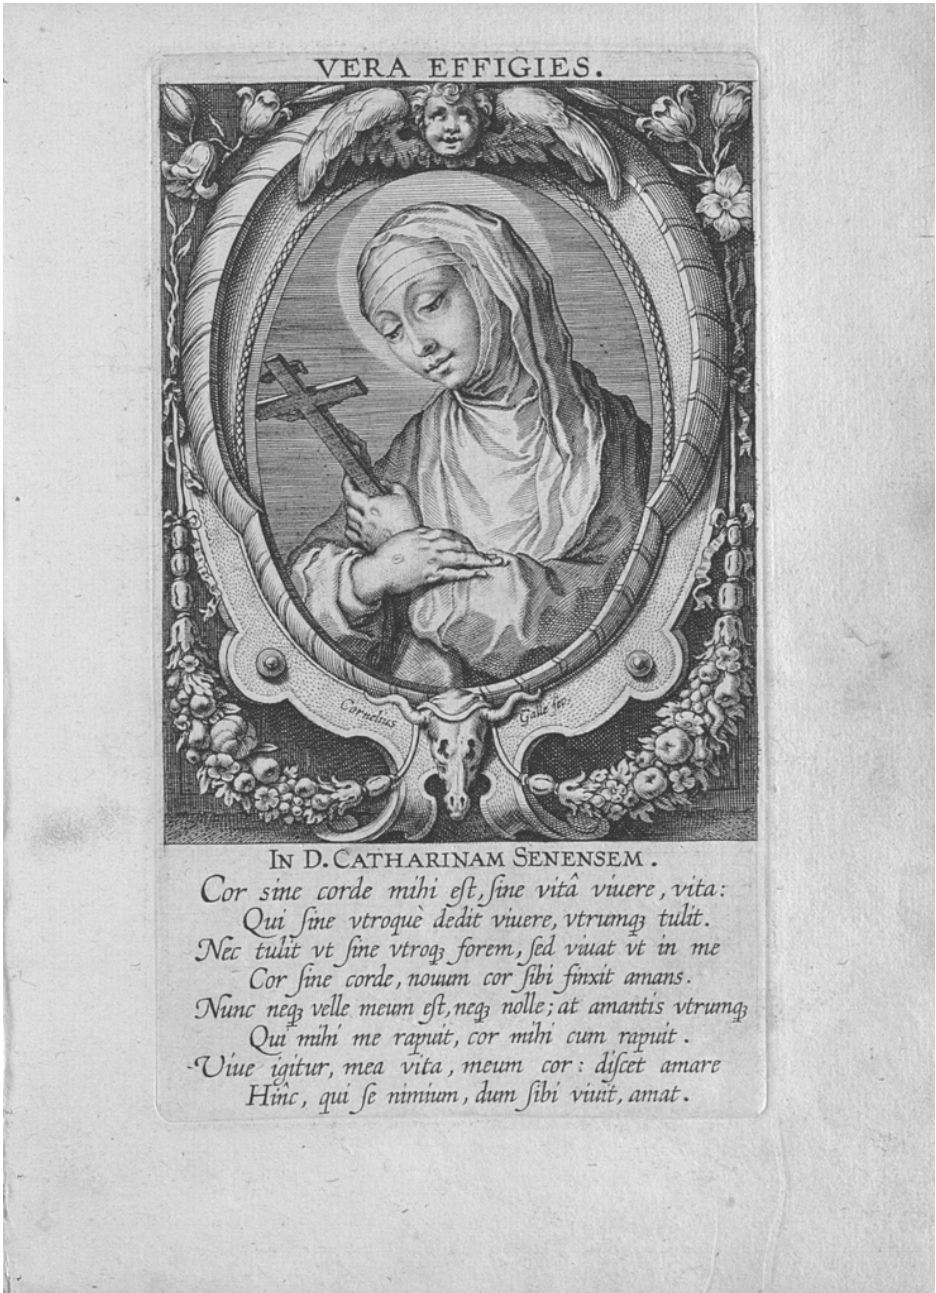 VERA EFFIGIES.
Cornelius Galle fec.
IN D. CATHARINAM SENENSEM.
Cor sine corde mihi eſt, ſine vitâ viuere, vita:
Qui ſine vtroquè dedit viuere, vtrumqꝫ tulit.
Nec tulit vt ſine vtroqꝫ forem, ſed viuat vt in me
Cor ſine corde, nouum cor ſibi finxit amans.
Nunc neqꝫ velle meum eſt, neqꝫ nolle; at amantis vtrumqꝫ
Qui mihi me rapuit, cor mihi cum rapuit.
Viue igitur, mea vita, meum cor: diſcet amare
Hinc, qui ſe nimium, dum ſibi viuit, amat.